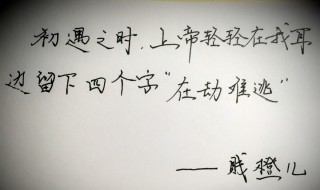 初遇之时，上帝轻轻在我耳
边留下四个字“在劫难逃”
——戏橙儿